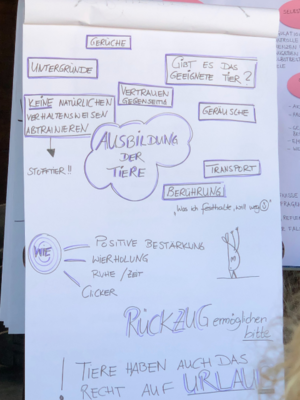 GERÜCHE
UNTERGRÜNDE
GIBT ES DAS
GEEIGNETE TIER?
VERTRAUEN
GEGENSEITIG
KEINE NATÜRLICHEN
VERHALTENSWEISEN
ABTRAINIEREN
GERÄUSCHE
AUSBILDUNG
DER
TIERE
STOFFTIER!!
TRANSPORT
BERÜHRUNG
„Was ich festhalte, will weg"
WIE
- POSITIVE BESTÄRKUNG
- WIERHOLUNG
- RUHE / ZEIT
- CLICKER
RÜCKZUG ermöglichen
bitte
! TIERE HABEN AUCH DAS
RECHT AUF URLAU